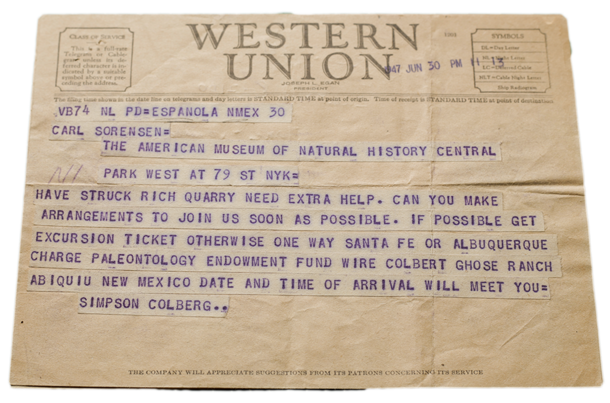 CLASS OF SERVICE
This is a full-rate
Telegram or Cable-
gram unless its de-
ferred character is in-
dicated by a suitable
symbol above or pre-
ceding the address.
WESTERN
UNION
JOSEPH L. EGAN
PRESIDENT
1201
SYMBOLS
DL=Day Letter
NL=Night Letter
LC=Deferred Cable
NLT=Cable Night Letter
Ship Radiogram
1947 JUN 30 PM 11 13
The filing time shown in the date line on telegrams and day letters is STANDARD TIME at point of origin. Time of receipt is STANDARD TIME at point of destination
VB74 NL PD=ESPANOLA NMEX 30
CARL SORENSEN=
THE AMERICAN MUSEUM OF NATURAL HISTORY CENTRAL
PARK WEST AT 79 ST NYK=
HAVE STRUCK RICH QUARRY NEED EXTRA HELP. CAN YOU MAKE
ARRANGEMENTS TO JOIN US SOON AS POSSIBLE. IF POSSIBLE GET
EXCURSION TICKET OTHERWISE ONE WAY SANTA FE OR ALBUQUERQUE
CHARGE PALEONTOLOGY ENDOWMENT FUND WIRE COLBERT GHOSE RANCH
ABIQUIU NEW MEXICO DATE AND TIME OF ARRIVAL WILL MEET YOU=
SIMPSON COLBERG..
THE COMPANY WILL APPRECIATE SUGGESTIONS FROM ITS PATRONS CONCERNING ITS SERVICE